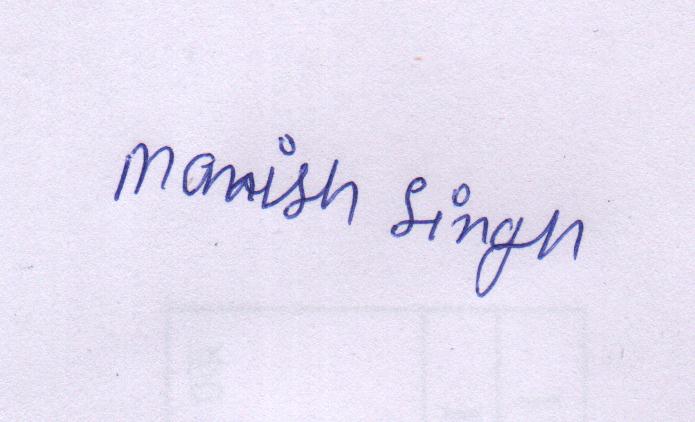 Manish Singh